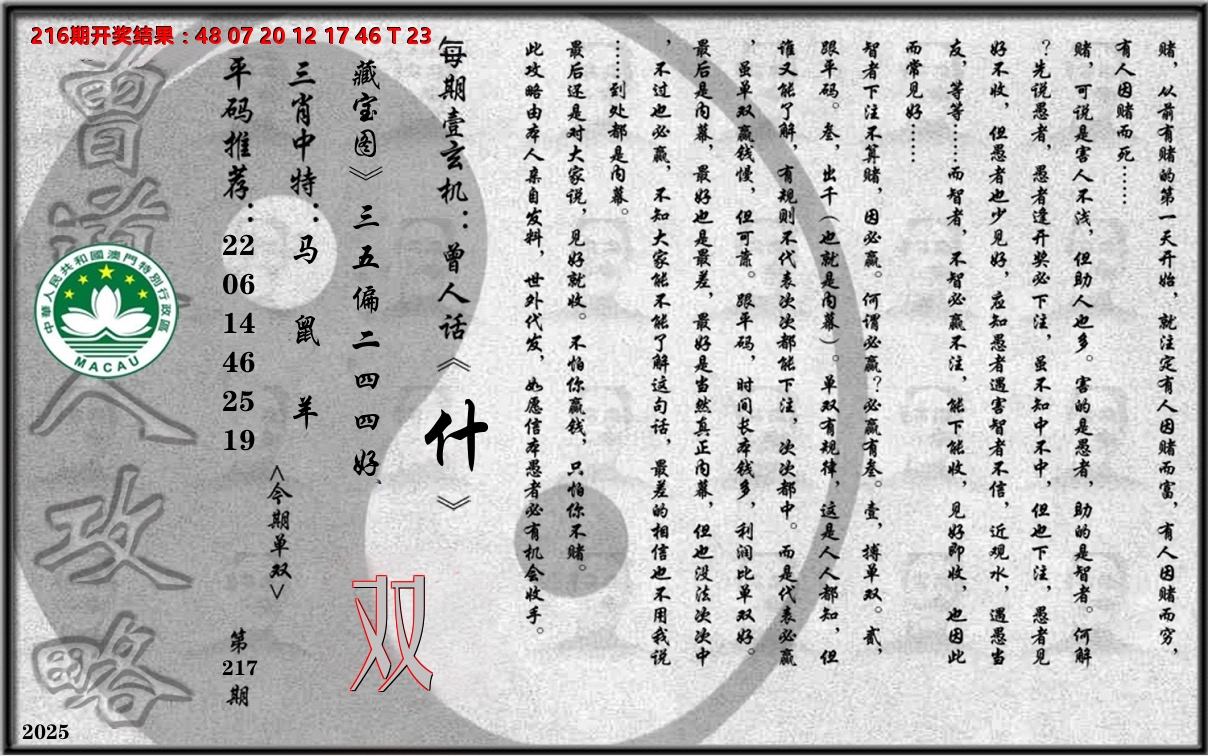 216期开奖结果：48 07 20 12 17 46 T 23
赌，从前有赌的第一天开始，就注定有人因赌而富，有人因赌而穷，
有人因赌而死……
赌，可说是害人不浅，但助人也多。害的是愚者，助的是智者。何解
？先说愚者，愚者逢开奖必下注，虽不知中不中，但也下注，愚者见
好不收，但愚者也少见好，应知愚者遇害智者不信，近观水，遇愚当
友，等等……而智者，不智必赢不注，能下能收，见好即收，也因此
而常见好……
智者下注不算赌，因必赢。何谓必赢？必赢有叁。壹，搏单双。贰，
跟平码。叁，出千（也就是内幕）。单双有规律，这是人人都知，但
谁又能了解，有规则不代表次次都能下注，次次都中。而是代表必赢
，虽单双赢钱慢，但可靠。跟平码，时间长本钱多，利润比单双好。
最后是内幕，最好也是最差，最好是当然真正内幕，但也没法次次中
，不过也必赢，不知大家能不能了解这句话，最差的相信也不用我说
……到处都是内幕。
最后还是对大家说，见好就收。不怕你赢钱，只怕你不赌。
此攻略由本人亲自发料，世外代发，如愿信本愚者必有机会收手。
每期壹玄机：曾人话《什》
藏宝图》三五偏二四四好、
双
三肖中特：马 鼠 羊
<今期单双>
平码推荐：22 06 14 46 25 19
第217期
曾道人攻略
中華人民共和國澳門特別行政區
MACAU
2025